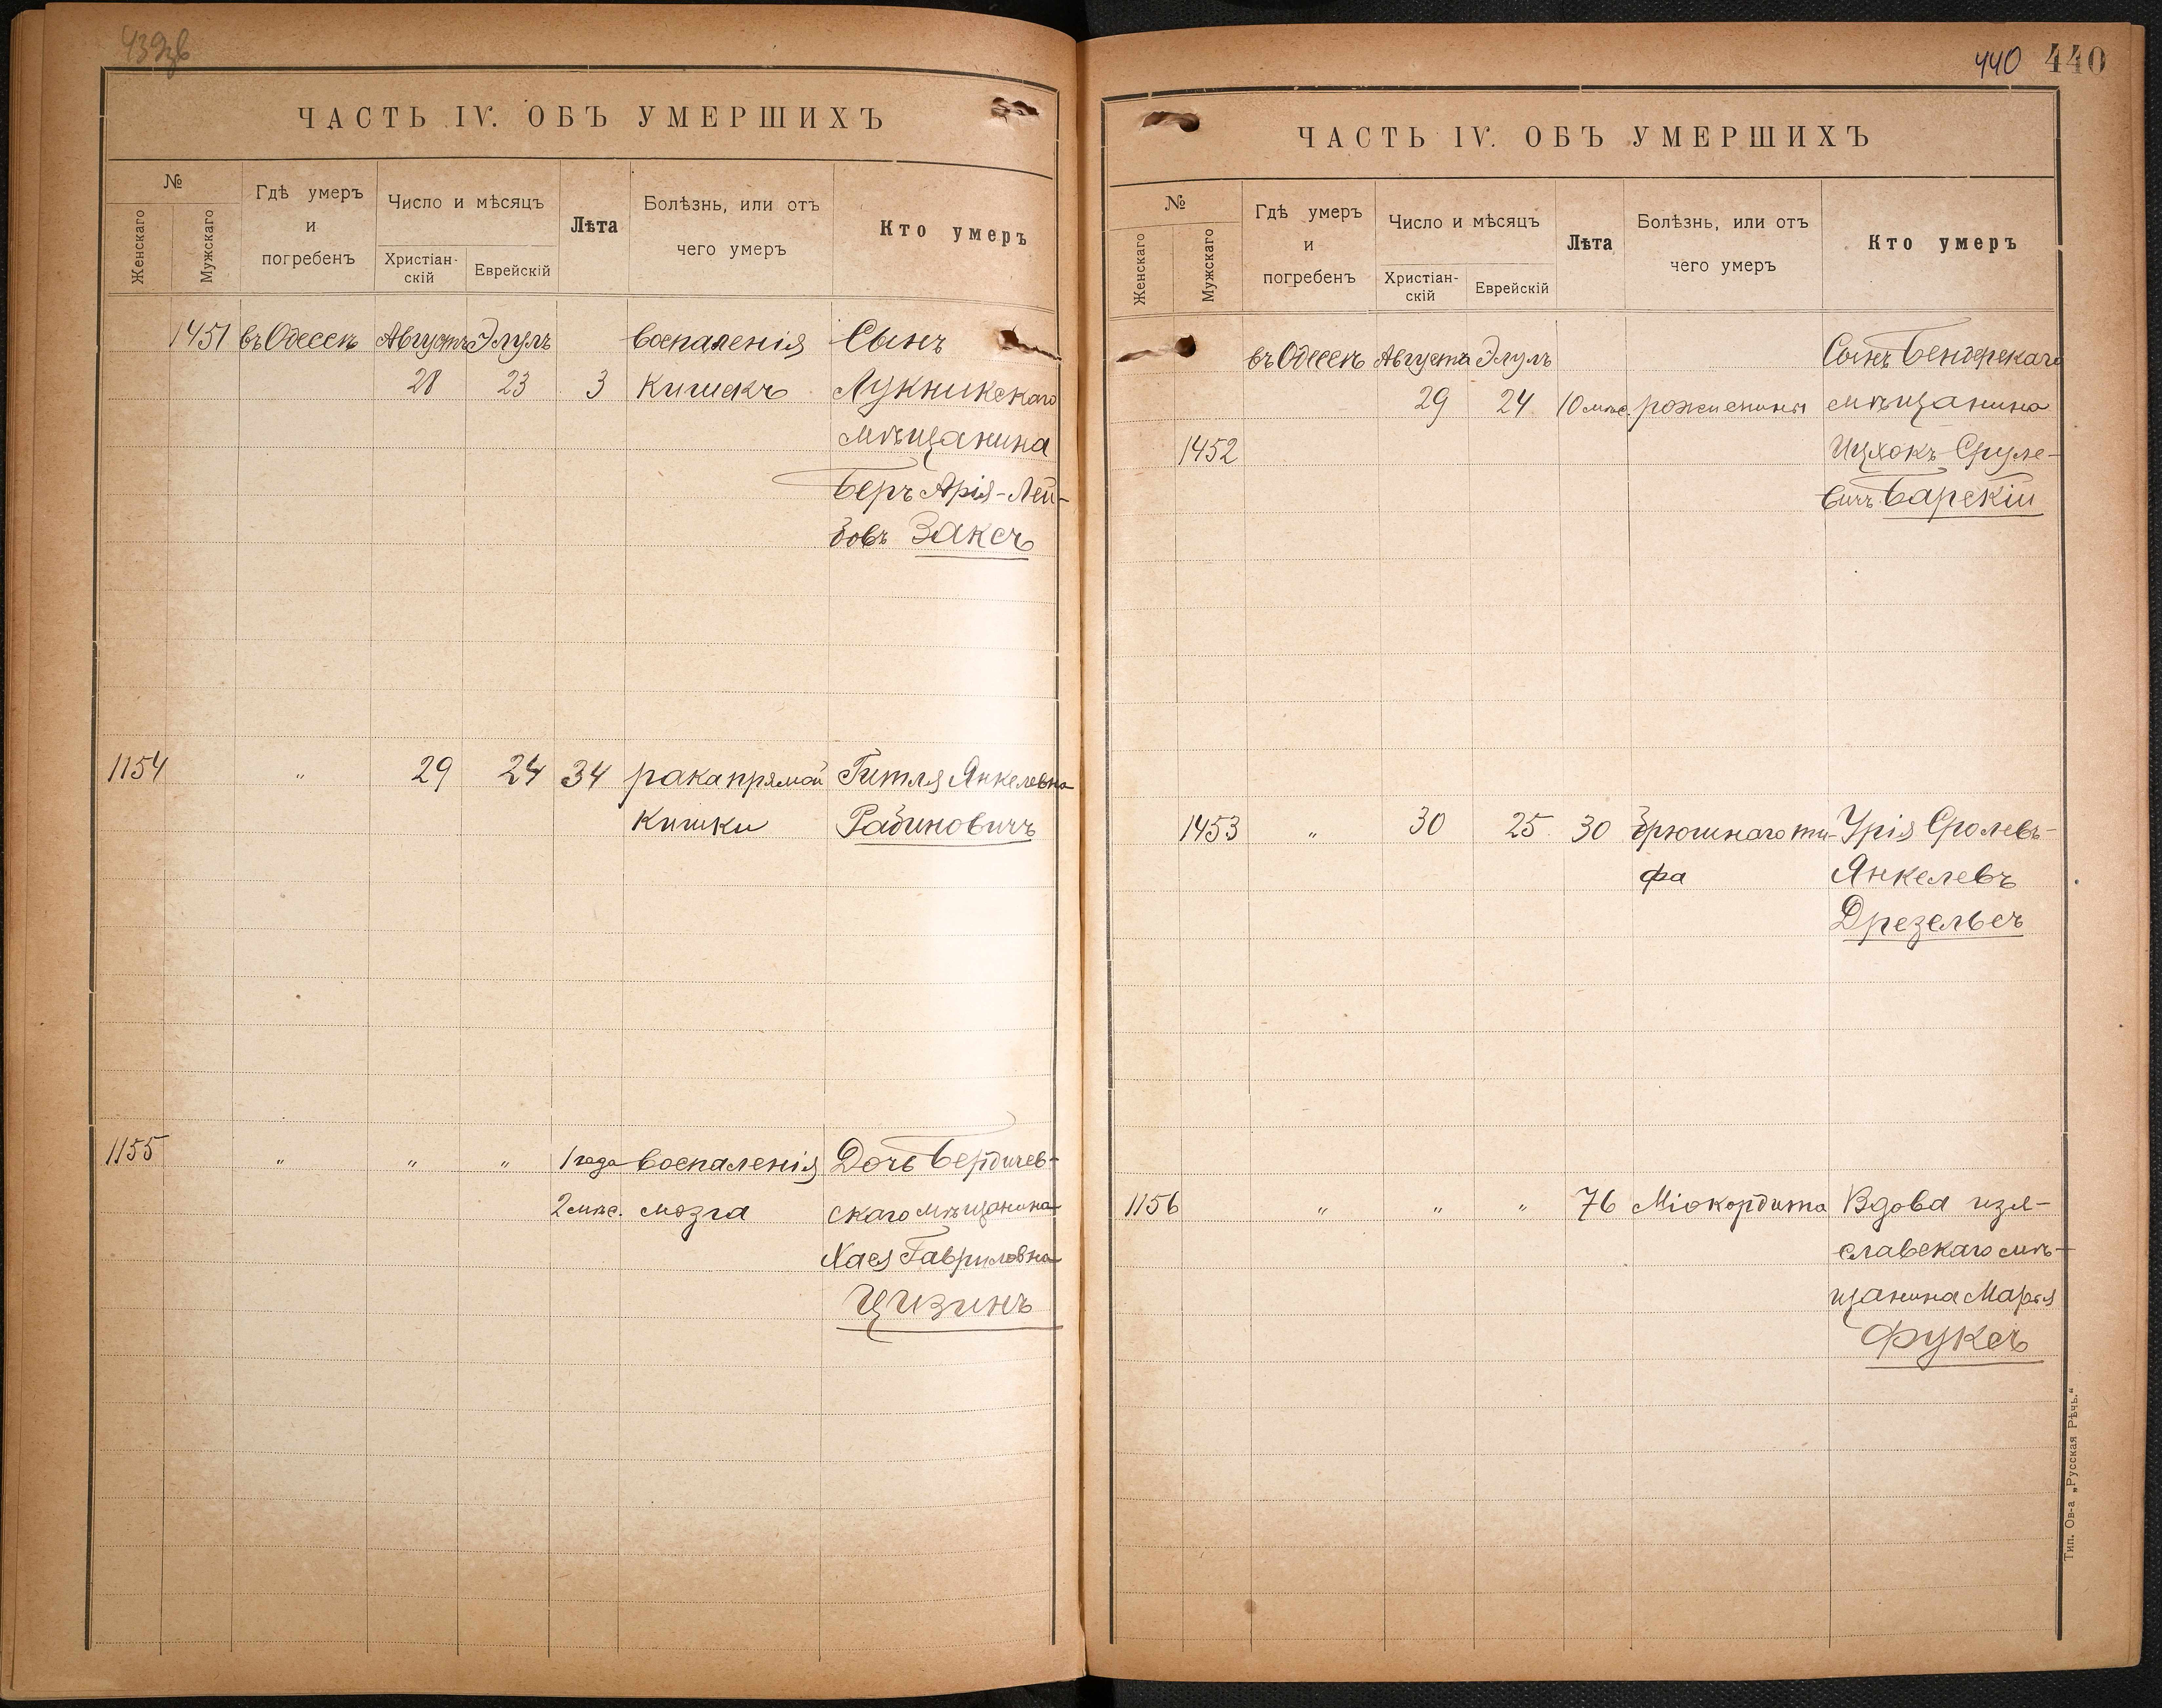 439об
ЧАСТЬ IV. ОБЪ УМЕРШИХЪ
№
Женскаго
Мужскаго
Гдѣ умеръ
и
погребенъ
Число и мѣсяцъ
Христіан-
скій
Еврейскій
Лѣта
Болѣзнь, или отъ
чего умеръ
Кто умеръ
1451 въ Одессѣ Августъ Элулъ воспаленія Сынъ
28 23 3 кишекъ Лукникскаго
мѣщанина
Беръ Арія-Лей-
бовъ Заксъ
1154 " 29 24 34 рака прямой Гитля Янкелевна
кишки Рабиновичъ
1155 " " " 1 года воспаленія Дочь Бердичев-
2 мѣс. мозга скаго мѣщанина
Хая Гавриловна
Цизинъ
440 440
ЧАСТЬ IV. ОБЪ УМЕРШИХЪ
№
Женскаго
Мужскаго
Гдѣ умеръ
и
погребенъ
Число и мѣсяцъ
Христіан-
скій
Еврейскій
Лѣта
Болѣзнь, или отъ
чего умеръ
Кто умеръ
въ Одессѣ Августа Элулъ Сынъ Бендерскаго
29 24 10 мѣс. мѣщанина
1452 Ицхокъ Сруле-
вичъ Барскій
1453 " 30 25 30 брюшного ти- Урія Сролевъ-
фа Янкелевъ
Дрезельсъ
1156 " " " 76 Міокордита Вдова изя-
славскаго мѣ-
щанина Марья
Фуксъ
Тип. Ов-а „Русская Рѣчь.“